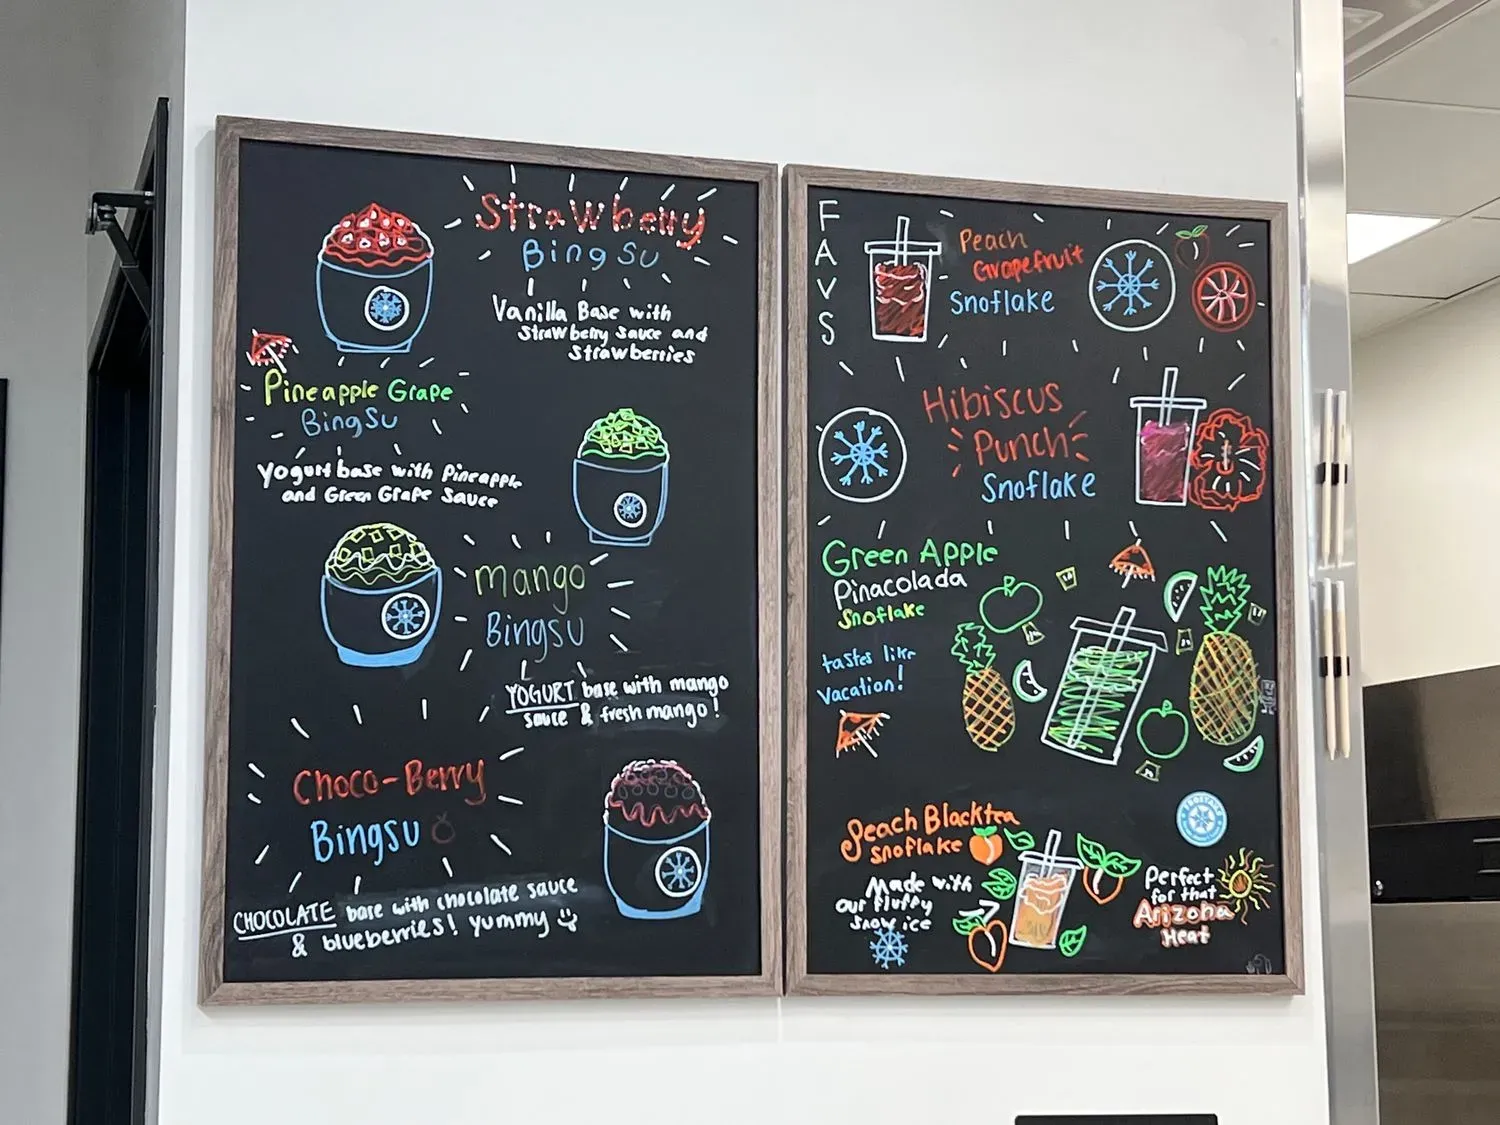 Strawberry
BingSu
Vanilla Base with
Strawberry Sauce and
Strawberries
Pineapple Grape
BingSu
Yogurt base with Pineapple
and Green Grape Sauce
mango
Bingsu
YOGURT base with mango
sauce & fresh mango!
Choco-Berry
Bingsu
CHOCOLATE base with chocolate sauce
& blueberries! yummy
FAVS
Peach
Grapefruit
Snoflake
Hibiscus
Punch
Snoflake
Green Apple
Pinacolada
Snoflake
tastes like
Vacation!
Peach Blacktea
Snoflake
Made with
our fluffy
snow ice
Perfect
for that
Arizona
Heat